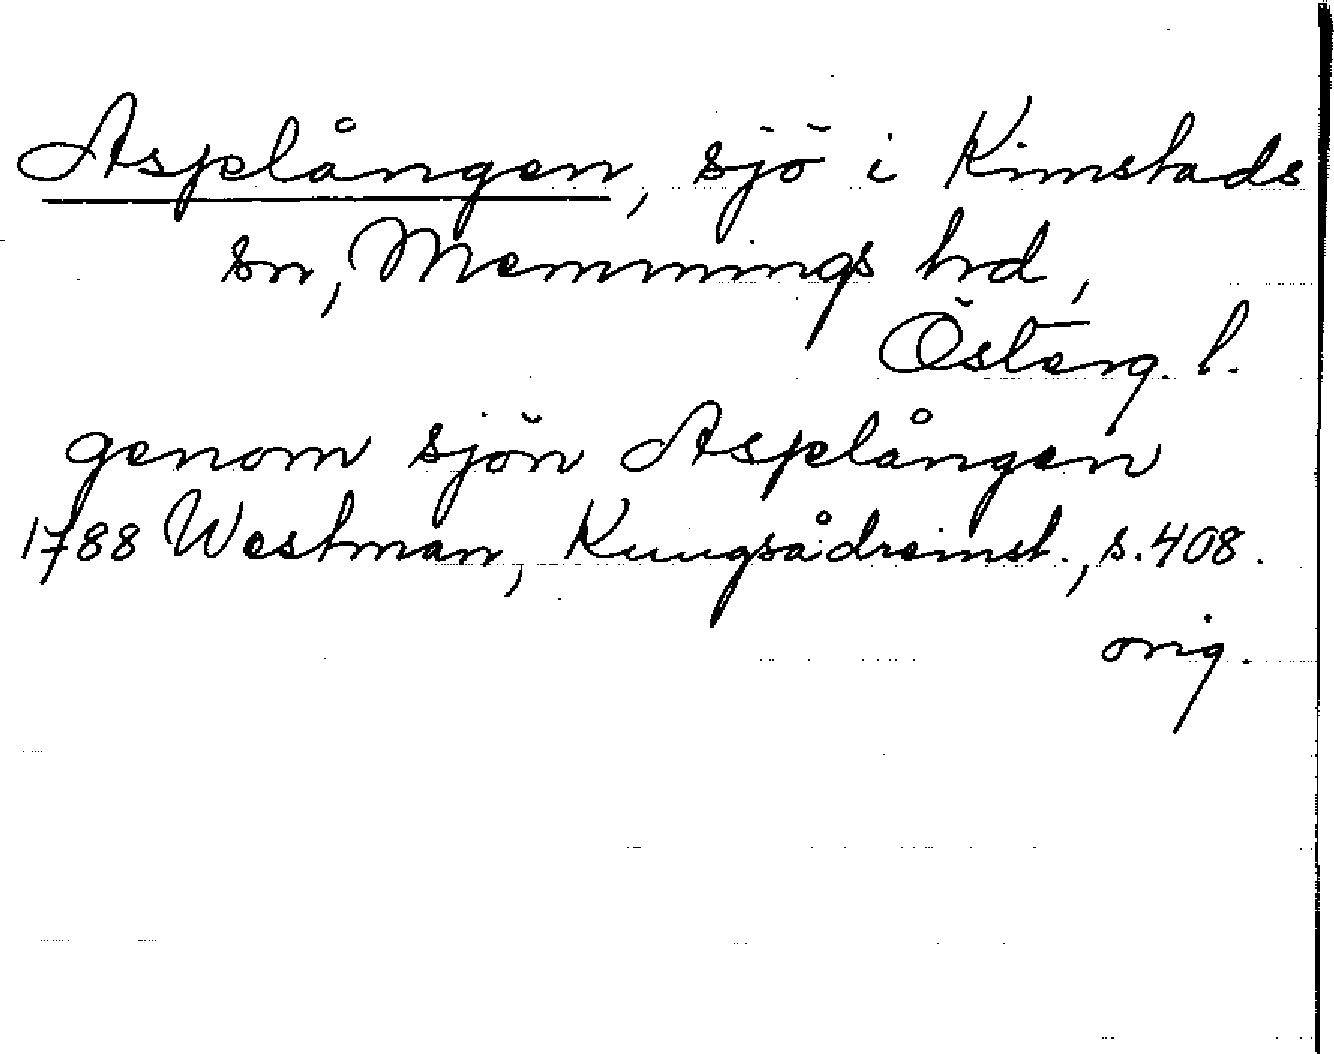 Asplången, sjö i Kimstads
sn, Memmings hrd,
Österg. l.
genom sjön Asplången
1788 Westman, Kungsådreinst., s. 408.
orig.